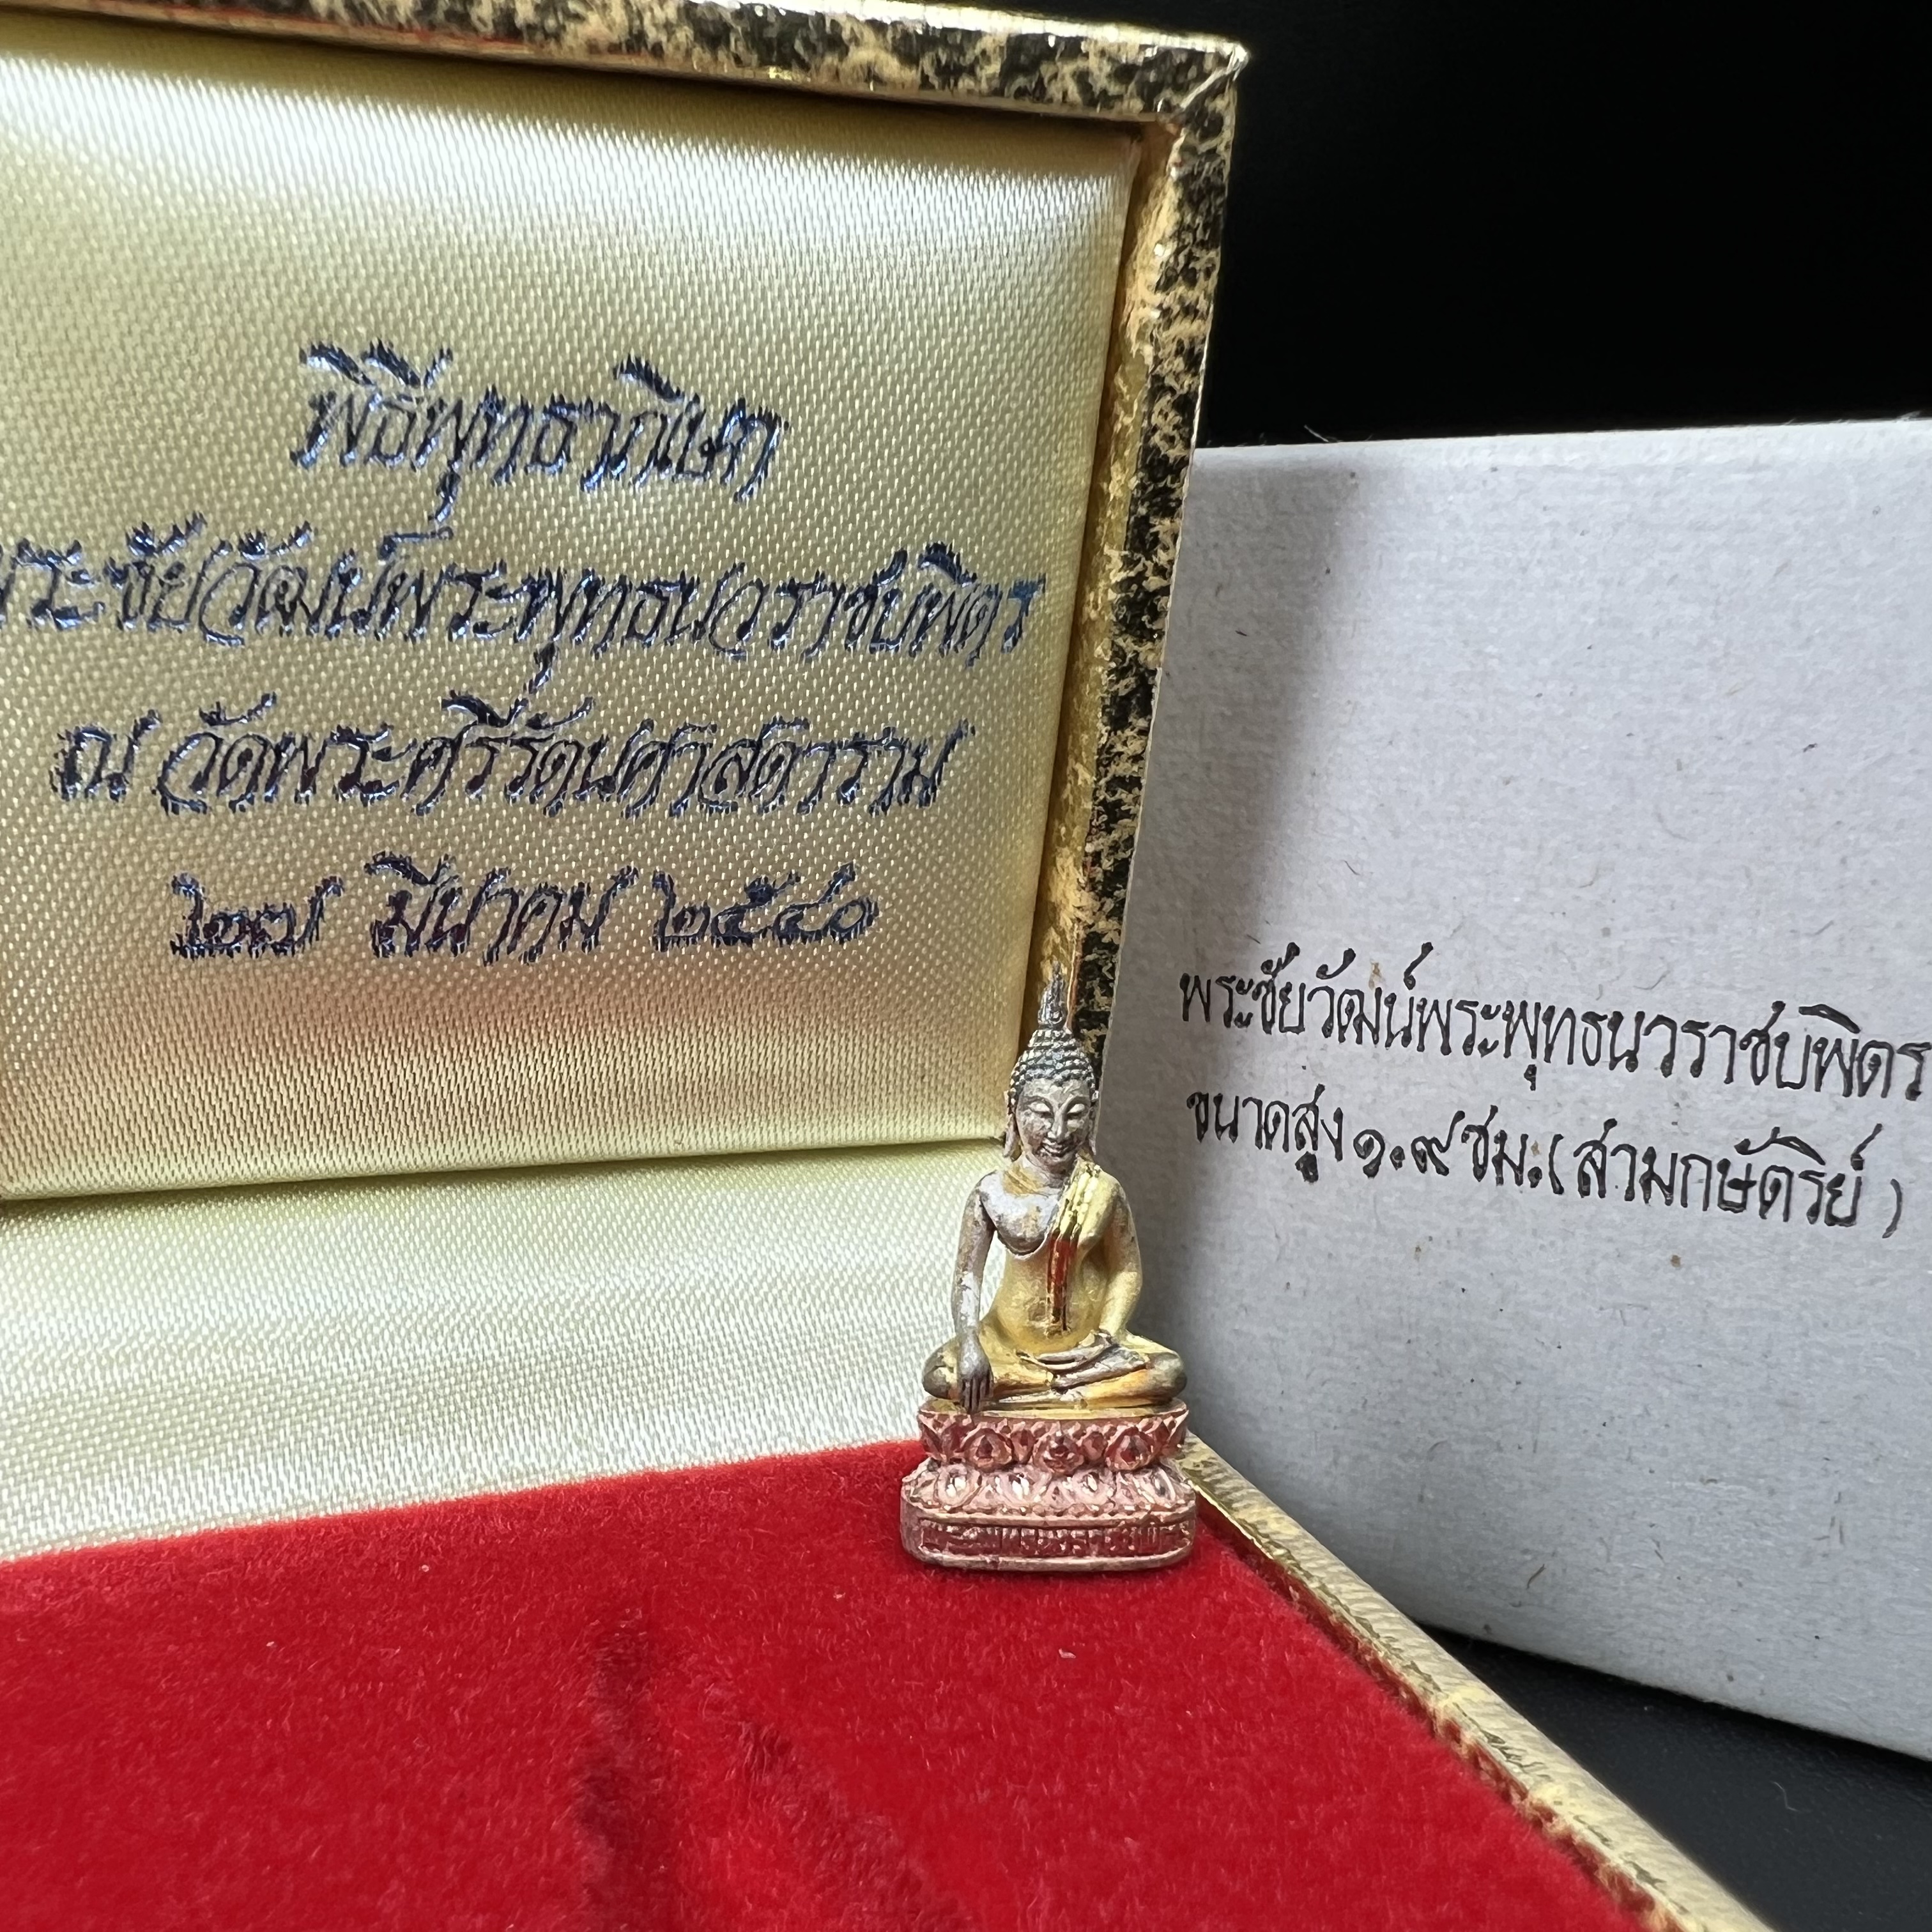 พิธีพุทธาภิเษก
พระชัยวัฒน์พระพุทธนวราชบพิตร
ณ วัดพระศรีรัตนศาสดาราม
๒๗ มีนาคม ๒๕๔๐
พระชัยวัฒน์พระพุทธนวราชบพิตร
ขนาดสูง ๑.๙ ซม. (สามกษัตริย์)